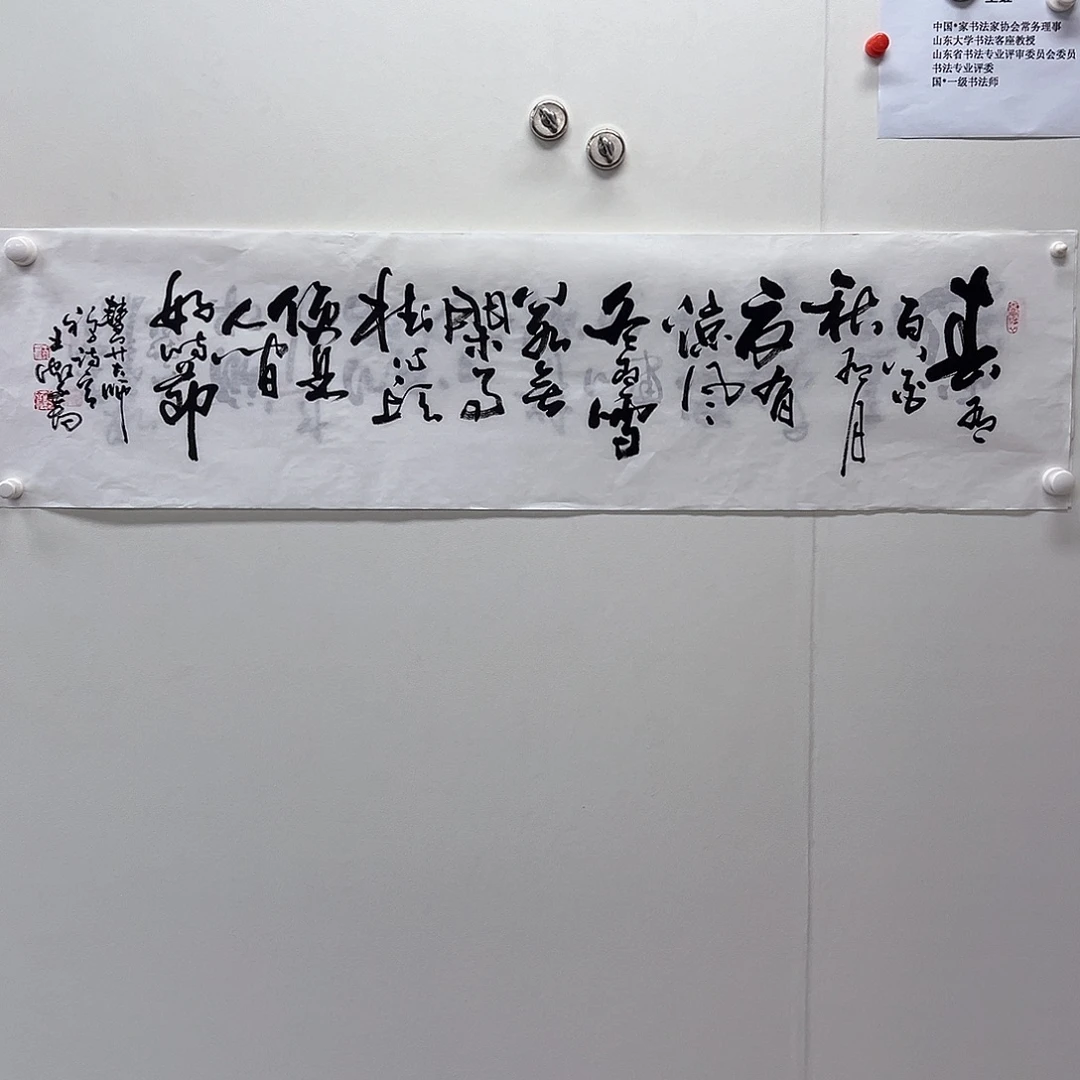 中国*家书法家协会常务理事
山东大学书法客座教授
山东省书法专业评审委员会委员
书法专业评委
国*一级书法师
春有
百花
秋有月
夏有
涼風
冬有雪
若無
閑事
掛心頭
便是
人間
好時節
慧开大师